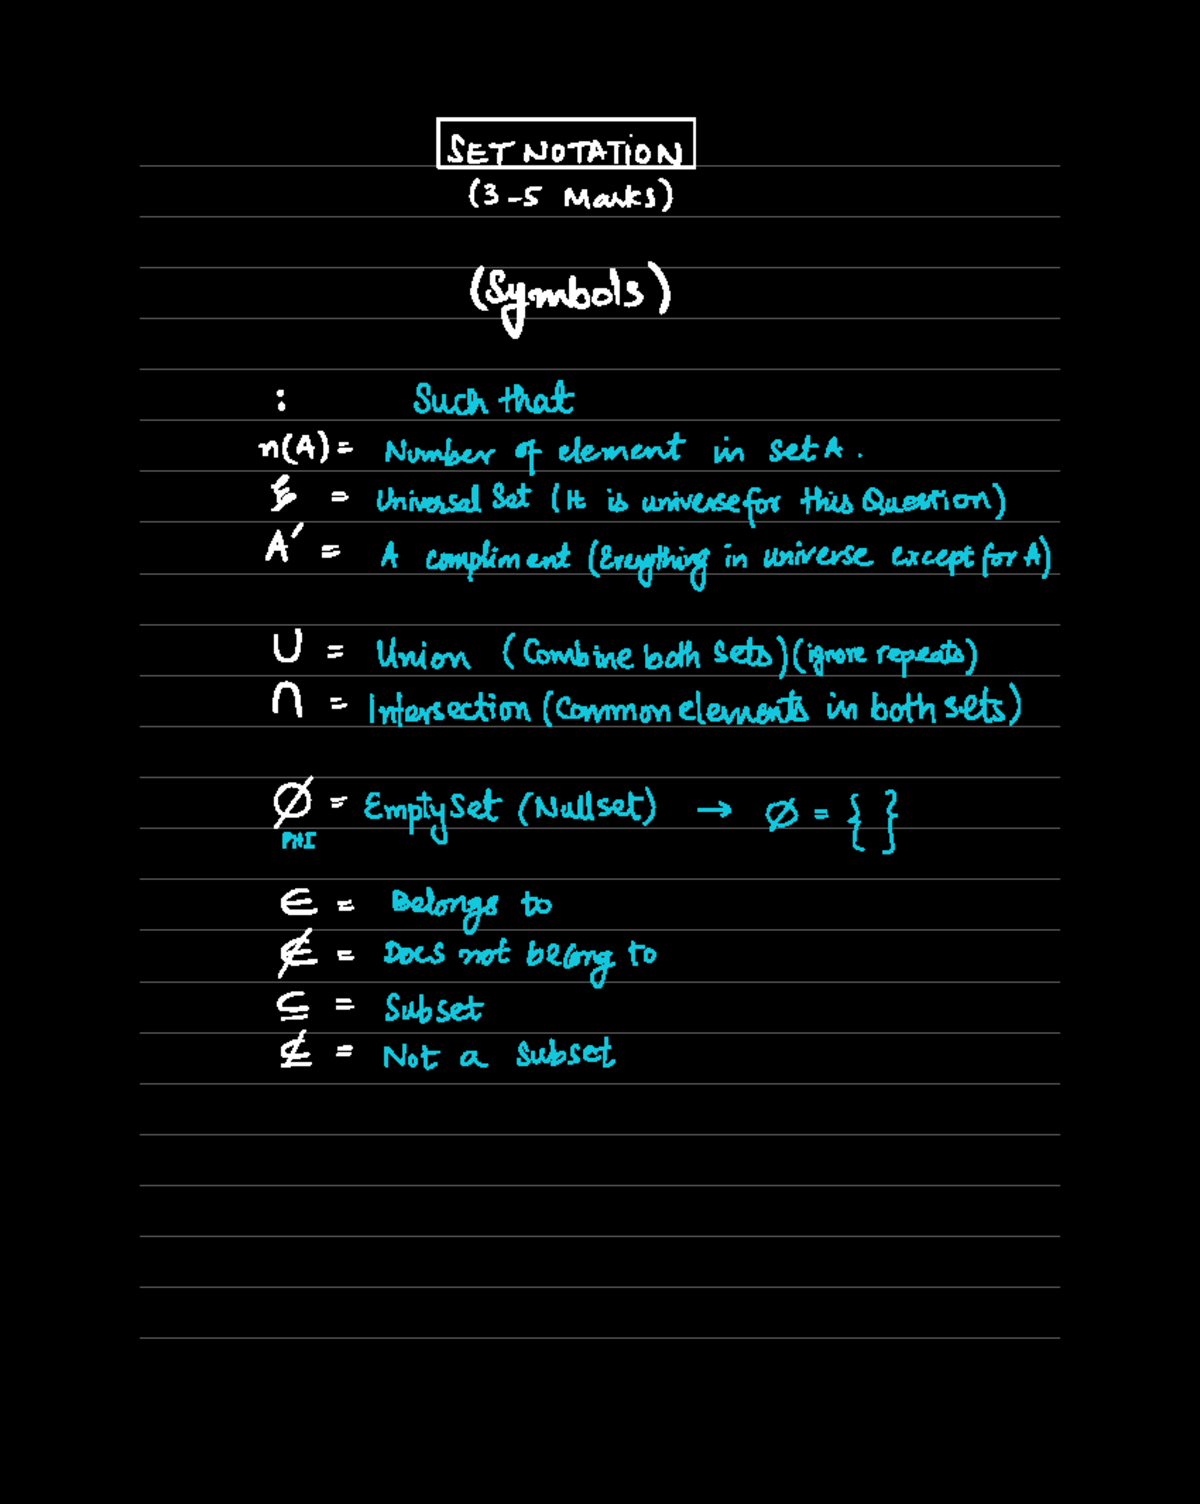 SET NOTATION
(3-5 Marks)
(Symbols)
: Such that
n(A) = Number of element in set A.
ξ = Universal Set (It is universe for this Question)
A′ = A compliment (Everything in universe except for A)
∪ = Union (Combine both sets) (ignore repeats)
∩ = Intersection (Common elements in both sets)
Ø = Empty Set (Null set) → Ø = { }
PHI
∈ = Belongs to
∉ = Does not belong to
⊆ = Subset
⊈ = Not a subset